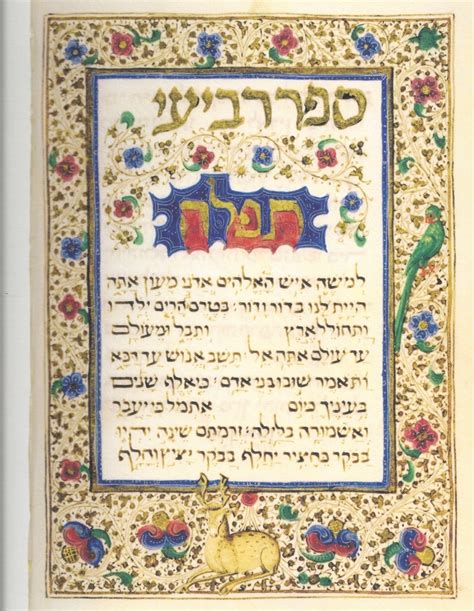 ספר רביעי
תפלה
למשה איש האלהים אדני מעון אתה
היית לנו בדור ודור: בטרם הרים ילדו
ותחולל ארץ ותבל ומעולם
עד עולם אתה אל: תשב אנוש עד דכא
ותאמר שובו בני אדם: כי אלף שנים
בעיניך כיום אתמל כי יעבר
ואשמורה בלילה: זרמתם שינה יהיו
בבקר כחציר יחלף בבקר יציץ וחלף